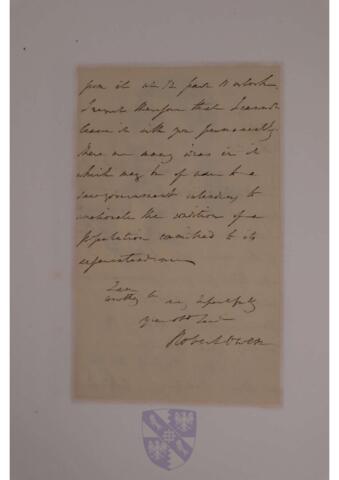 from it at 1/2 past 11 o'clock
I regret therefore that I cannot
leave it with you permanently.
There are many ideas in it
which may be of use to a
government intending to
ameliorate the condition of a
population committed to its
superintendence
I am
very respectfully
Your obt Servt
Robert Owen